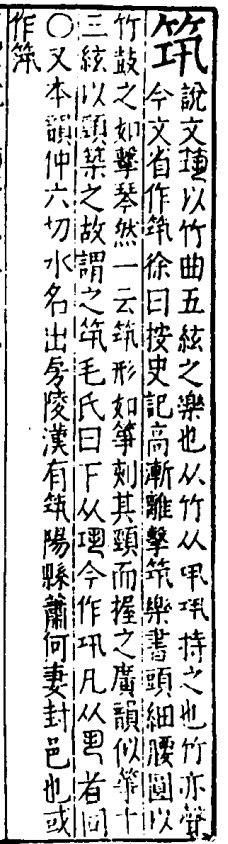 筑 說文𥬰以竹曲五絃之樂也从竹从𠃨巩持之也竹亦聲
今文省作筑徐曰按史記高漸離擊筑樂書頭細腰圓以
竹鼓之如擊琴然一云筑形如箏刻其頸而握之廣韻似箏十
三絃以頸築之故謂之筑毛氏曰下从巩今作巩凡从者同
○又本韻仲六切水名出房陵漢有筑陽縣蕭何妻封邑也或
作筑